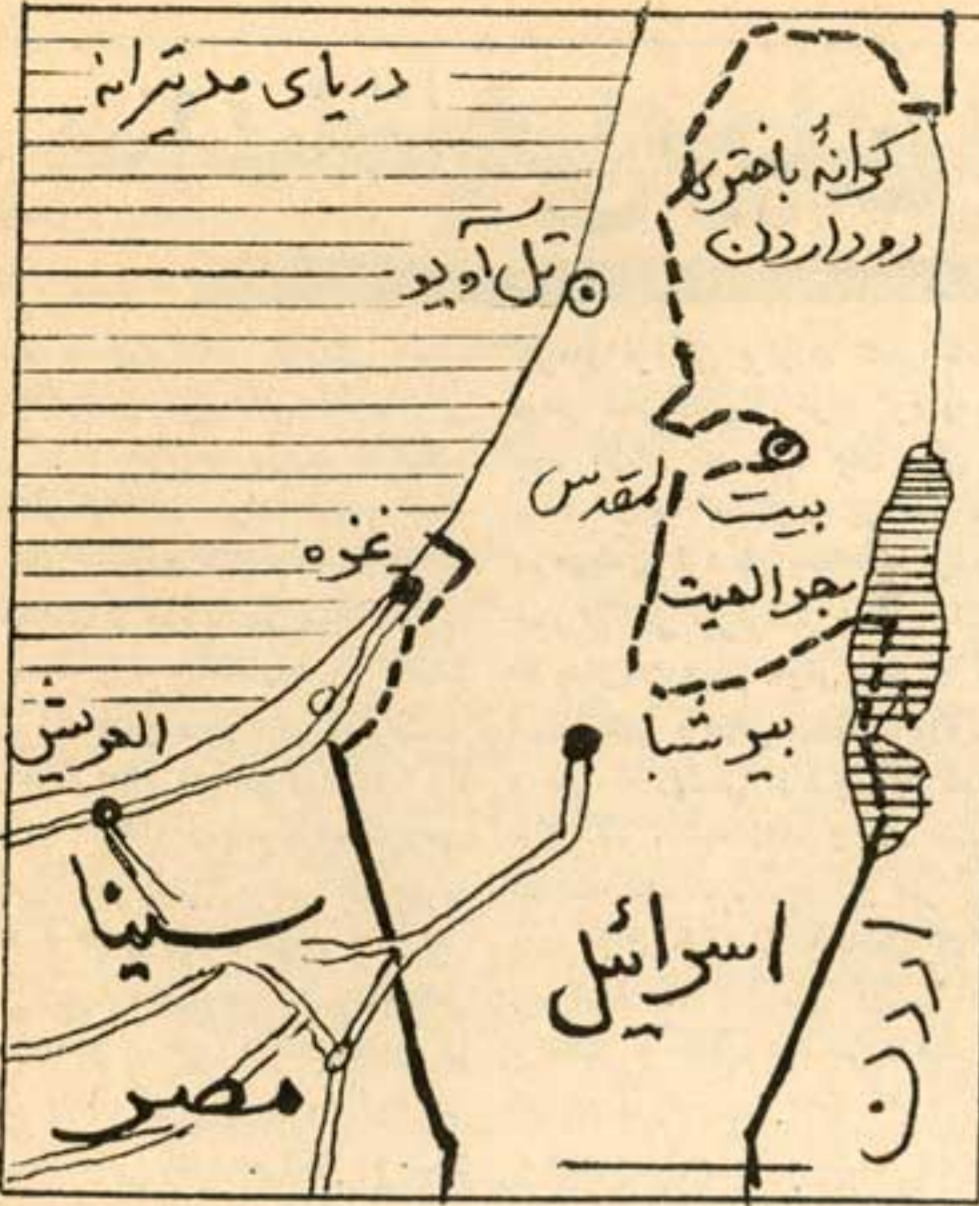 دریای مدیترانه
کرانهٔ باختری
رود اردن
تل آویو
بیت المقدس
غزه
بحر المیت
العریش
بیر شبا
سینا
اسرائیل
اردن
مصر